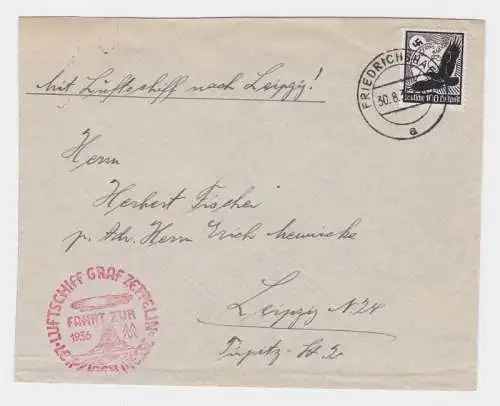 Mit Luftschiff nach Leipzig!
FRIEDRICHSHA
30.8.
a
Deutsche 100 Luftpost
Herrn
Herbert Fischer
p. Adr. Herrn Erich
Leipzig N 24
Tirpitz-St. 2
LUFTSCHIFF GRAF ZEPPELIN
FAHRT ZUR
1936
LEIPZIGER MESSE